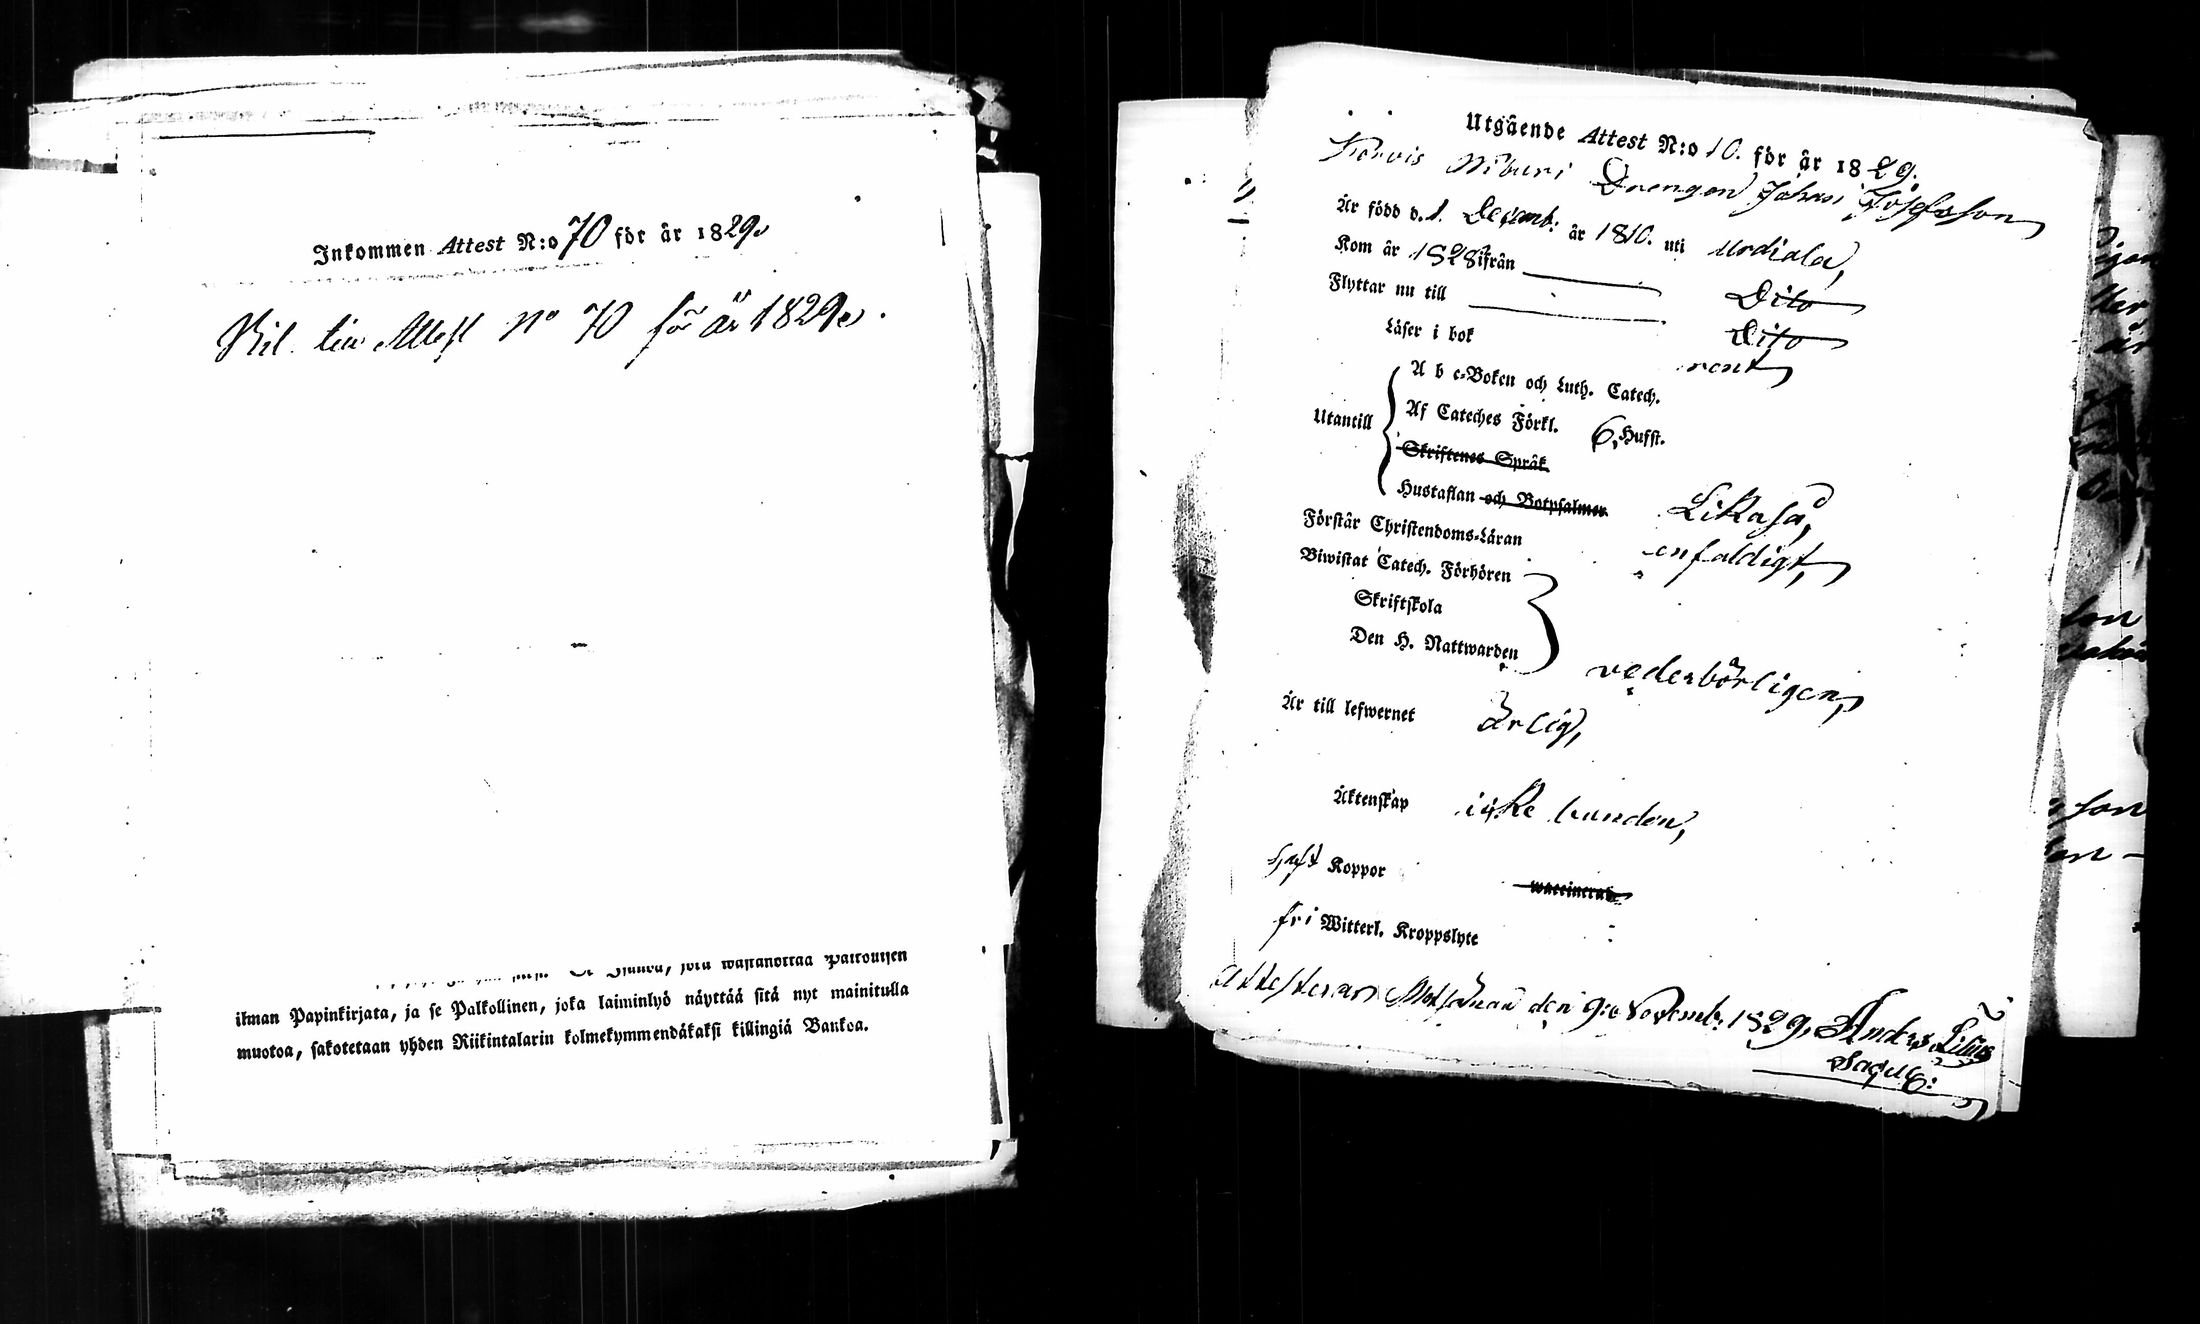 Inkommen Attest N:o 70 för år 1829.
Bil. till Attest No 70 för år 1829.
ilman Papinkirjata, ja se Palkollinen, joka laiminlyö näyttää sitä nyt mainitulla
muotoa, sakotetaan yhden Riikintalarin kolmekymmendäkaksi killingiä Bankoa.
Utgående Attest N:o 10. för år 1829.
Drengen Johan Josefsson
Är född d. 1. Decemb: år 1810. uti Urdiala,
Kom år 1828 ifrån Dito
Flyttar nu till Dito
Läser i bok rent,
Utantill
A b c-Boken och Luth. Catech.
Af Cateches Förkl. 6, Hufst.
Skriftenes Språk
Hustaflan och Botpsalmer Likaså,
Förstår Christendoms-Läran enfaldigt,
Biwistat Catech. Förhören
Skriftskola
Den H. Nattwarden vederbörligen,
Är till lefwernet ärlig,
Äktenskap icke bunden,
haft Koppor waccinerad
fri Witterl. Kroppslyte
Attesterar den 9:e Novemb: 1829, Anders Lilius
Sacell: